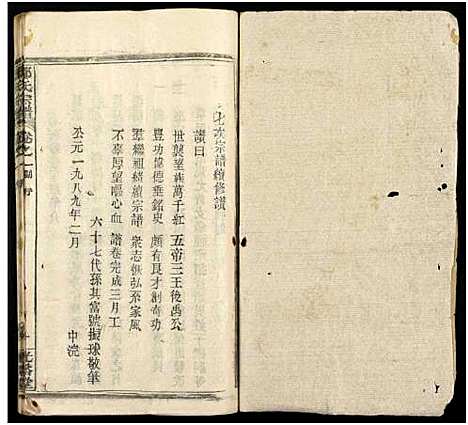 七次宗譜續修讚
讚曰
世襲望族萬千紅 五帝三王後禹公
豐功偉德垂銘史 頗有良才創奇功
羣樾祖緒續宗譜 衆志恢弘系家風
不辜厚望嘔心血 譜卷完成三月工
六十七代孫其富號振球敬筆
公元一九八九年二月 中浣
氏宗譜 卷之一
光裕堂